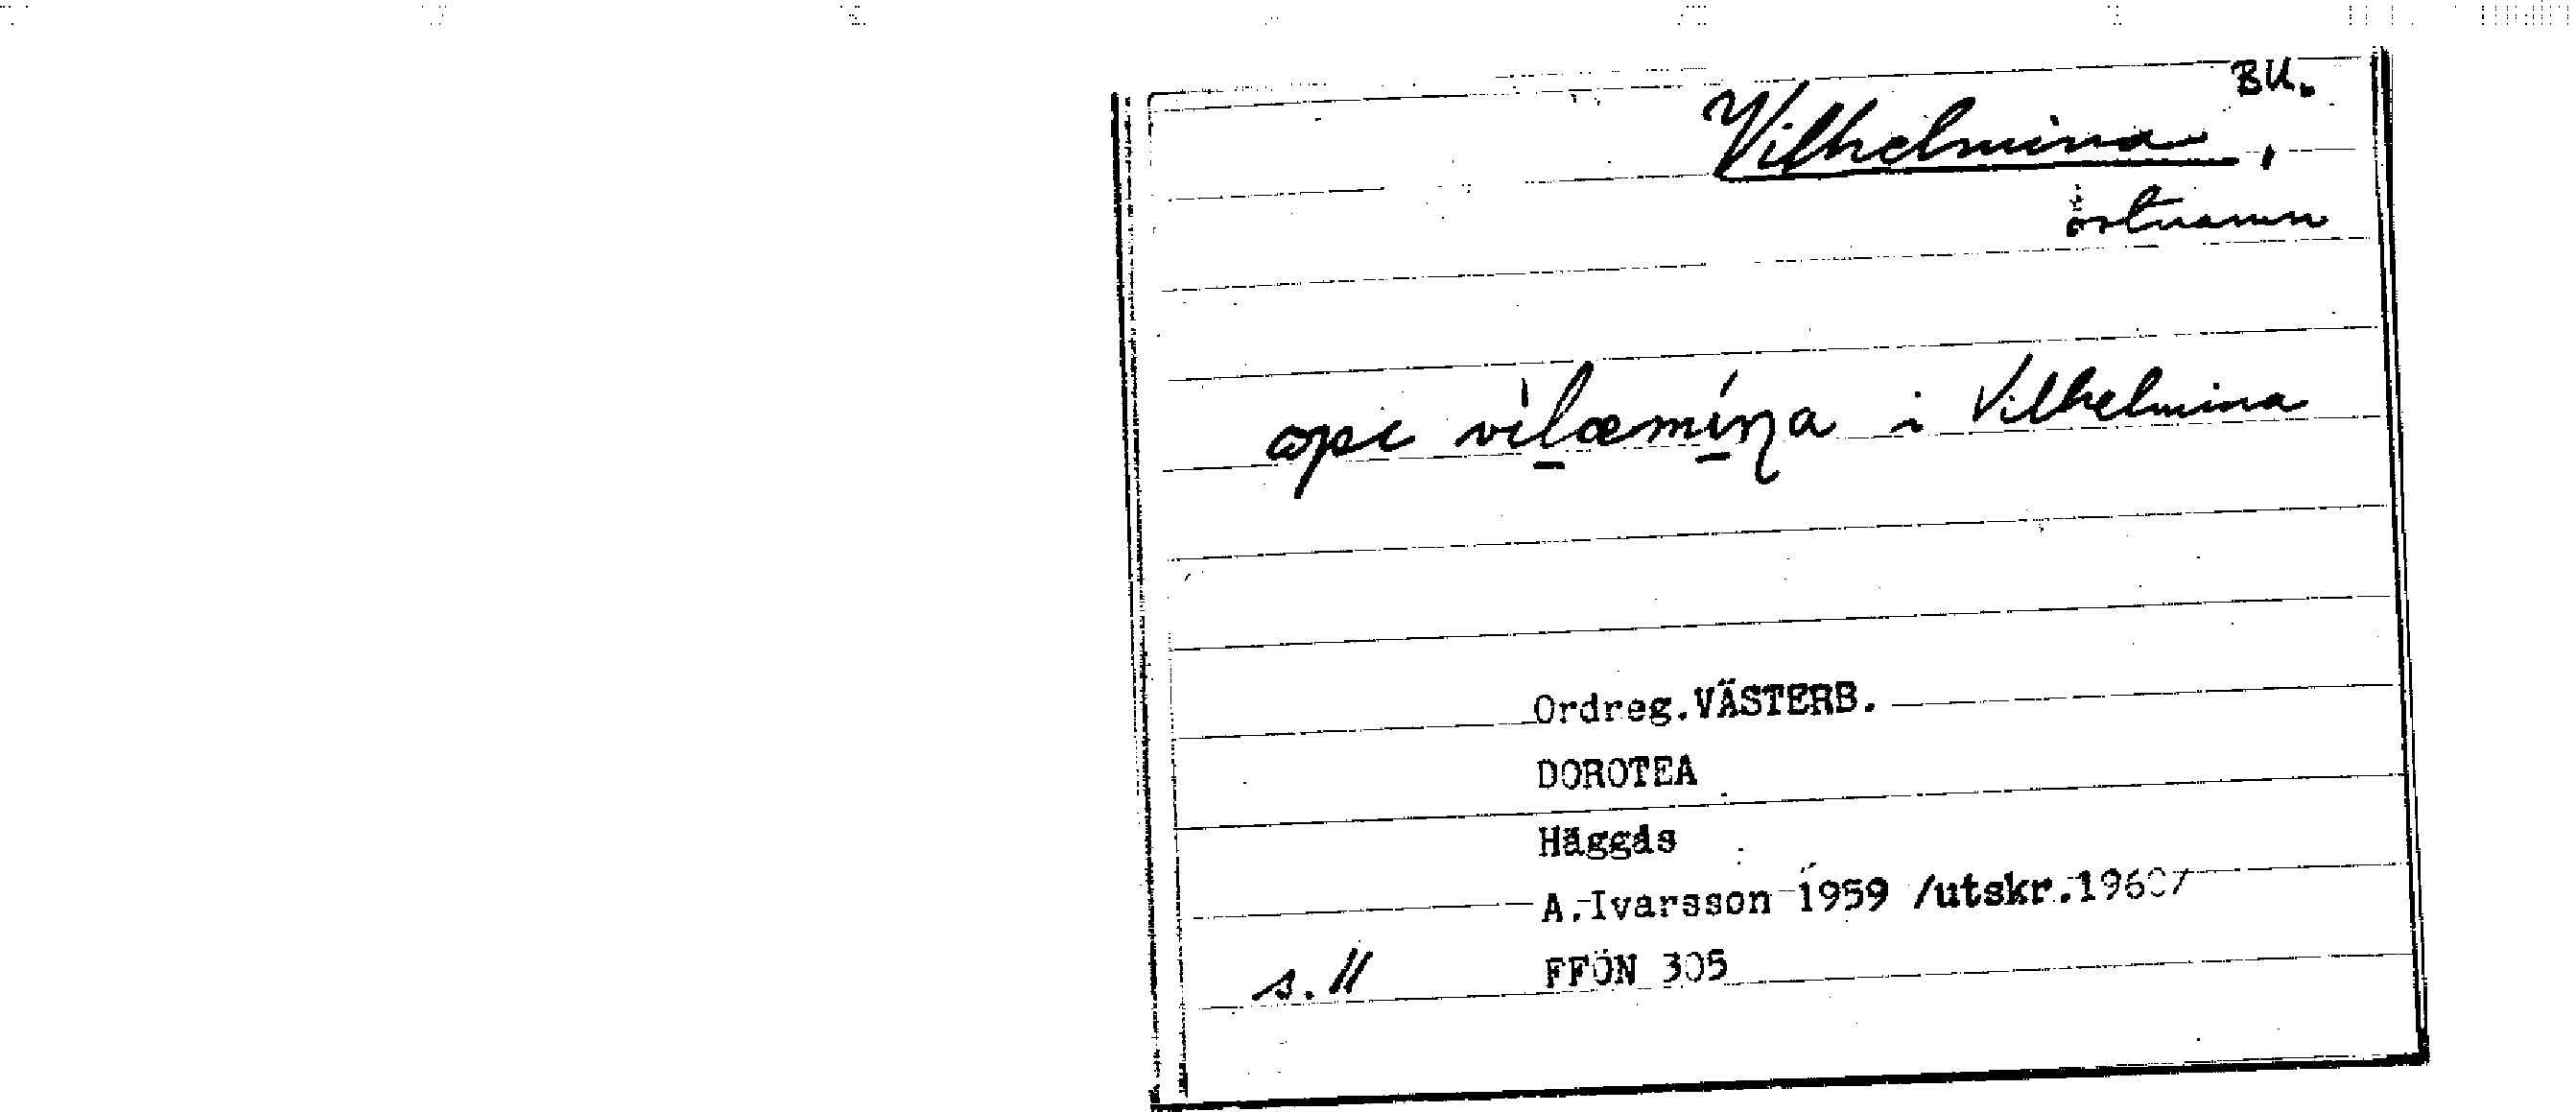 BU.
Vilhelmina,
ortnamn
i Vilhelmina
Ordreg.VÄSTERB.
DOROTEA
Häggås
A.Ivarsson 1959 /utskr.1960/
s. 11 FFÖN 305